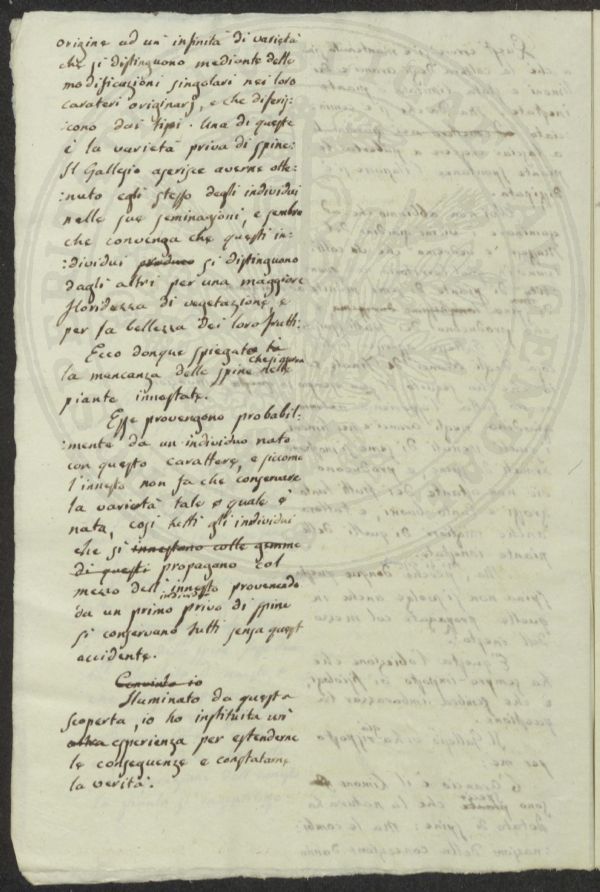 origine ad un' infinità di varietà
che si distinguono mediante delle
modificazioni singolari nei loro
carateri originarj, e che diferis:
:cono dai tipi. Una di queste
è la varietà priva di spine:
Il Gallesio aserisce averne otte:
:nuto egli stesso degli individui
nelle sue seminagioni, e sembra
che convenga che questi in:
:dividui produco si distinguono
dagli altri per una maggiore
floridezza di vegetazione, e
per la bellezza dei loro frutti.
Ecco donque spiegato
la mancanza delle spine che si osserva nelle
piante innestate.
Esse provengono probabil:
:mente da un individuo nato
con questo carattere, e siccome
l'innesto non fa che conservare
la varietà tale e quale è
nata, così tutti gli individui
che si innestano colle gemme
di questi propagano col
mezzo dell'innesto provenendo
da un primo individuo privo di spine
si conservano tutti senza quest
accidente.
Convinto io
Iluminato da questa
scoperta, io ho instituita un'
altra esperienza per estenderne
le conseguenze e constatarne
la verità.